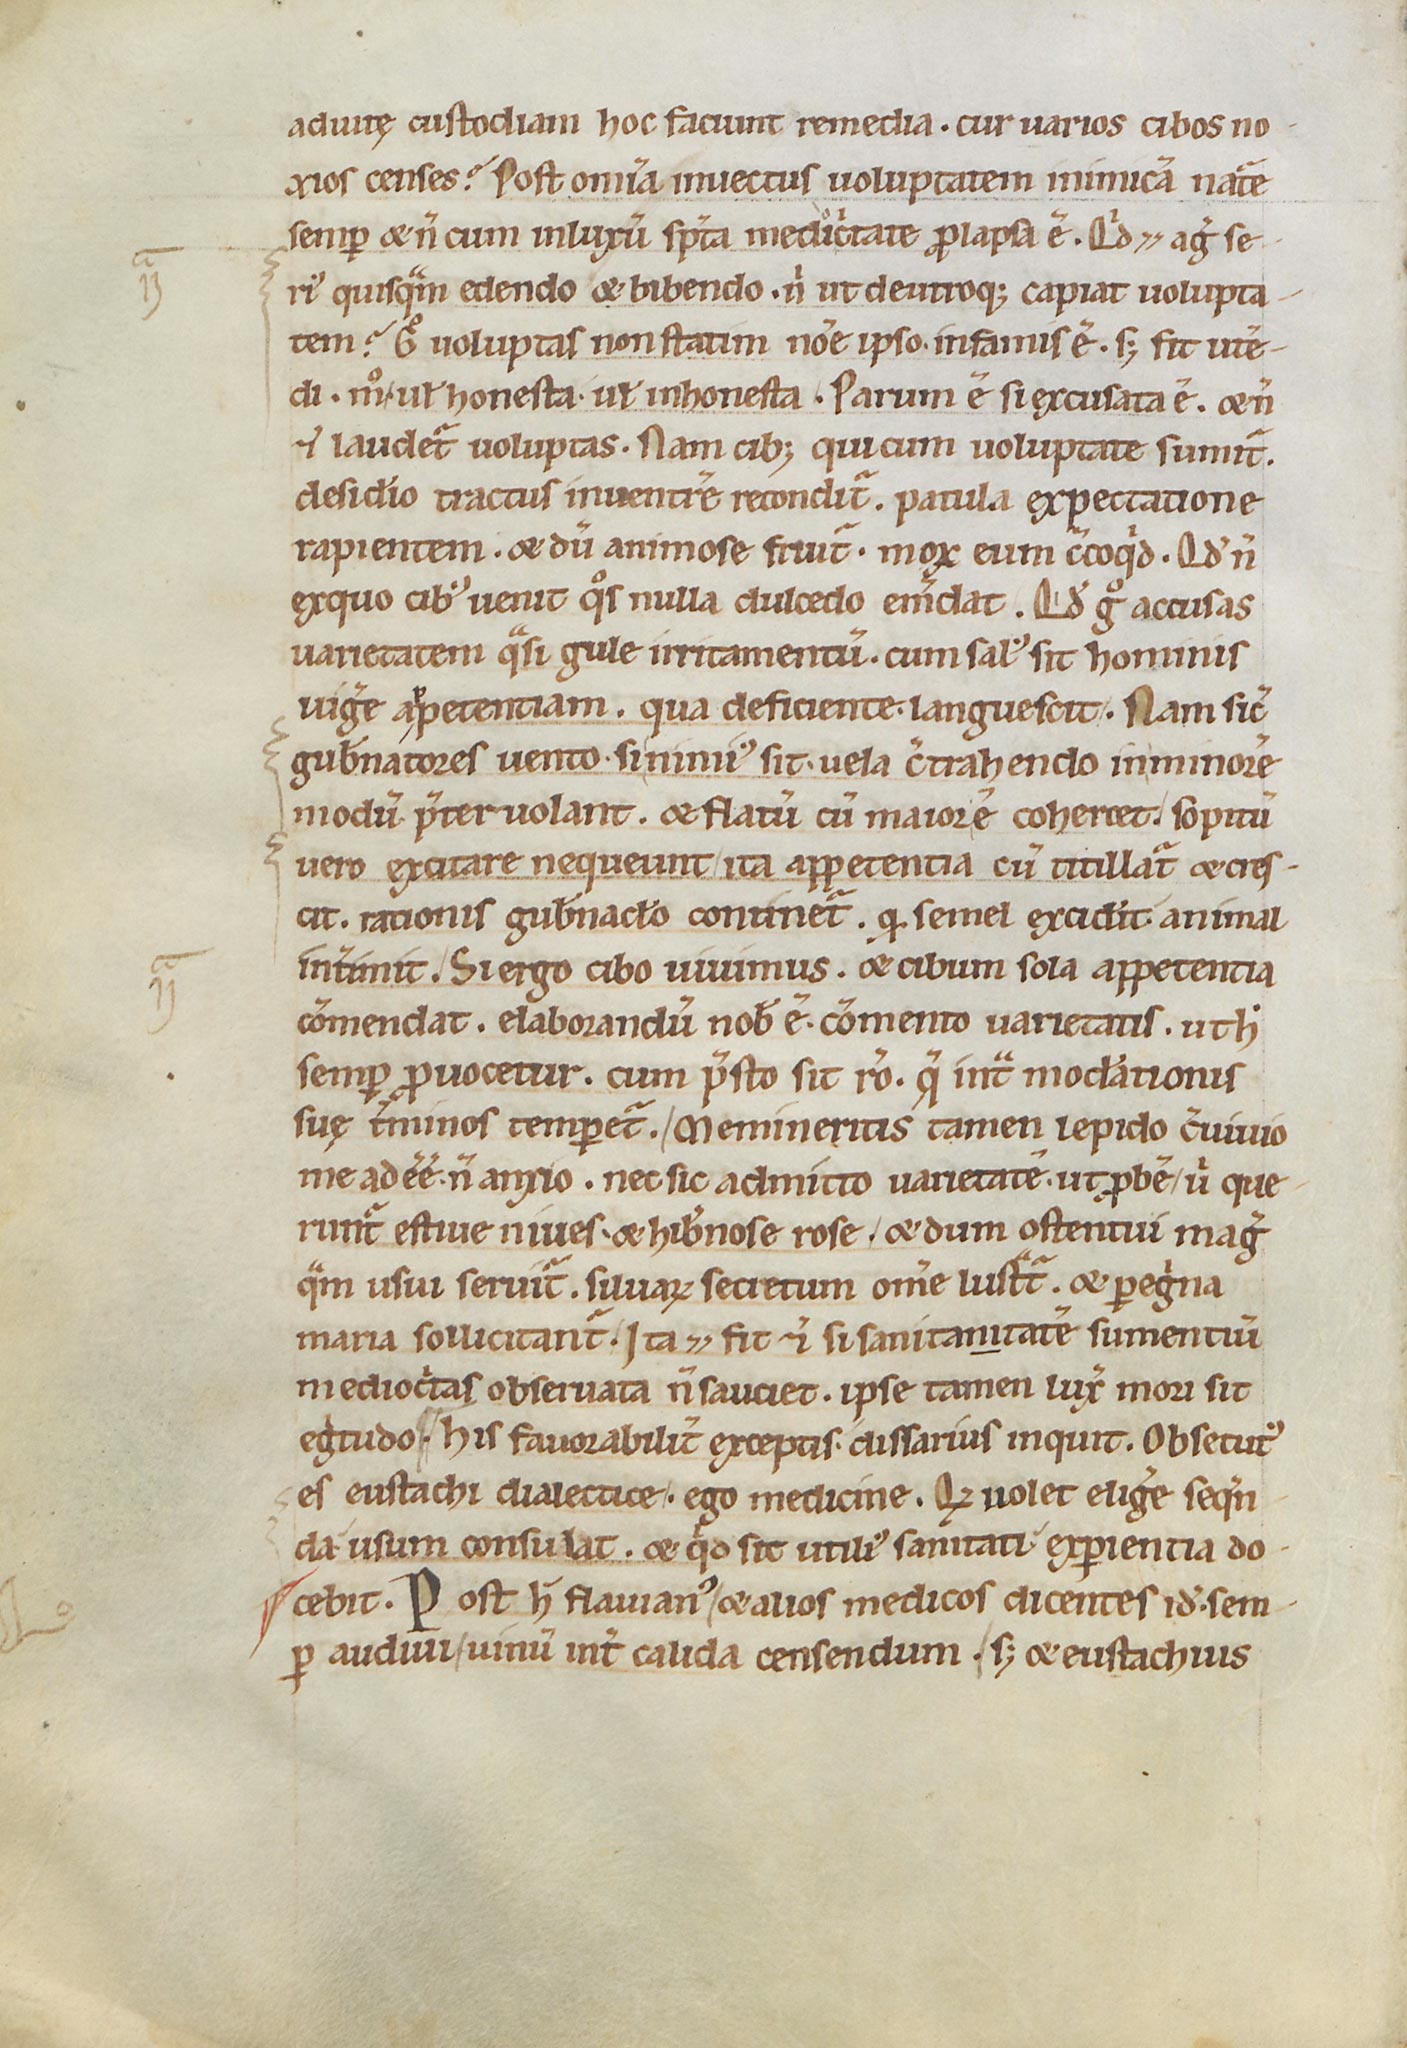 aduitę custodiam hoc faciunt remedia . cur uarios cibos no-
xios censes? Post om̄ia inuectus uoluptatem inimicā nat̄e
semꝑ & n̄ cum inluxū sp̄ta medioc̓tate ꝓlapsa ē . Qd̓ aḡ se-
ri᷒ quisqͣm edendo & bibendo . n̓ ut deutroq; capiat uolupta-
tem? Gͦ uoluptas non statim no̅e ipso . infamis ē . s; fit utē-
di . mͦ . ul̵ honesta . ul̵ inhonesta . Parum ē si excusata ē . & n̄
⁊ laudet᷑ uoluptas . Nam cib; qui cum uoluptate sumit᷑ .
desidio tractus inuentrē recondit᷑ . patula expectatione
rapientem . & dū animose fruit᷑ . mox eum c̄coqͥd . Qd̓ n̄
exquo cib᷒ uenit qͦs nulla dulcedo em̄dat . Qd̓ gͦ accusas
uarietatem qͣsi gule irritamentū . cum sal᷒ sit hominis
uig̓e appetentiam . qua deficiente . languescit . Nam sic̓
gub̓natores uento . si nimi᷒ sit . uela c̄trahendo in minorē
modū p̄teruolant . & flatū cū maior ē cohercet / sopitū
uero excitare nequeunt / ita appetentia cū titillat᷑ & cres-
cit . rationis gub̓nacl̵o continet᷑ . ꝙ semel excidit . animal
int̓imit . / Si ergo cibo uiuimus . & cibum sola appetentia
cōmendat . elaborandū nob̓ ē . cōmento uarietatis . ut h̓
semꝑ ꝓuocetur . cum p̄sto sit ro̅ . qͣ intͣ mod̓ationis
suę t̓minos temꝑet᷑ . / Memineritis tamen lepido c̄uiuio
me adēē . n̄ anxio . nec sic admitto uarietatē . ut ꝓbē / u̓ que-
runt᷑ estiue niues . & hib̓nose rose / & dum ostentui mag̓
qͣm usui seruit᷑ . siluaꝝ secretum om̄e lustͣt᷑ . & ꝑegͥna
maria sollicitant᷑ . / Ita fit ⁊ si sanitanitatē sumentiū
medioc̓tas obseruata n̄ sauciet . ipse tamen lux̓ mori sit
egͥtudo . His fauorabilit̓ exceptis . dissarius inquit . Obsecut᷒
es eustachi dialectice . ego medicine . Qͥ uolet elig̓e seqͥn
da usum consulat . & qͥd sit utili᷒ sanitati . exꝑientia do-
cebit . Post h̄ flauian᷒ / & alios medicos dicentes id̓ . sem-
ꝑ audiui / uinū int̓ calida censendum . / s; & eustachius